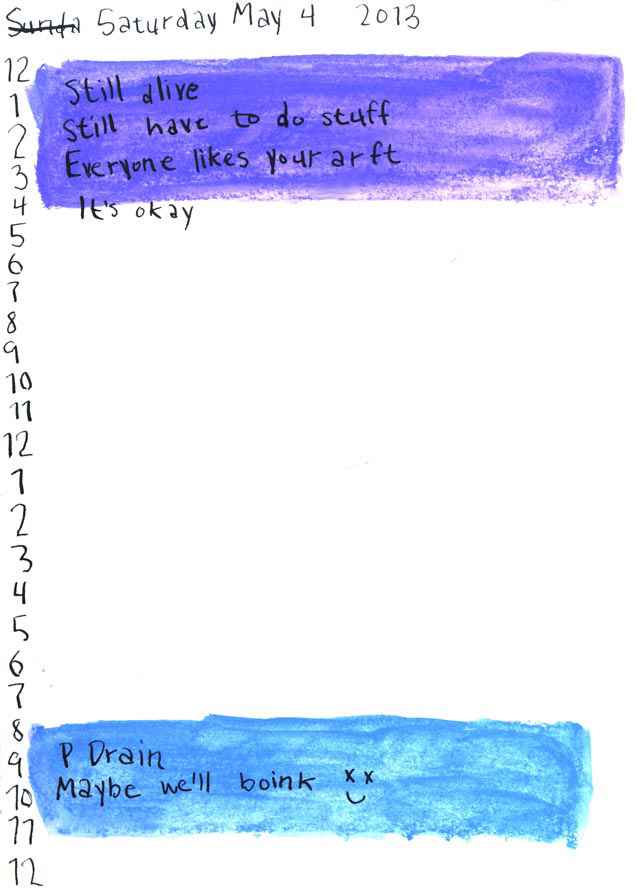 Sunda Saturday May 4 2013
12
Still alive
1
Still have to do stuff
2
Everyone likes your arft
3
4
It's okay
5
6
7
8
9
10
11
12
1
2
3
4
5
6
7
8
P Drain
9
Maybe we'll boink xx
10
11
12